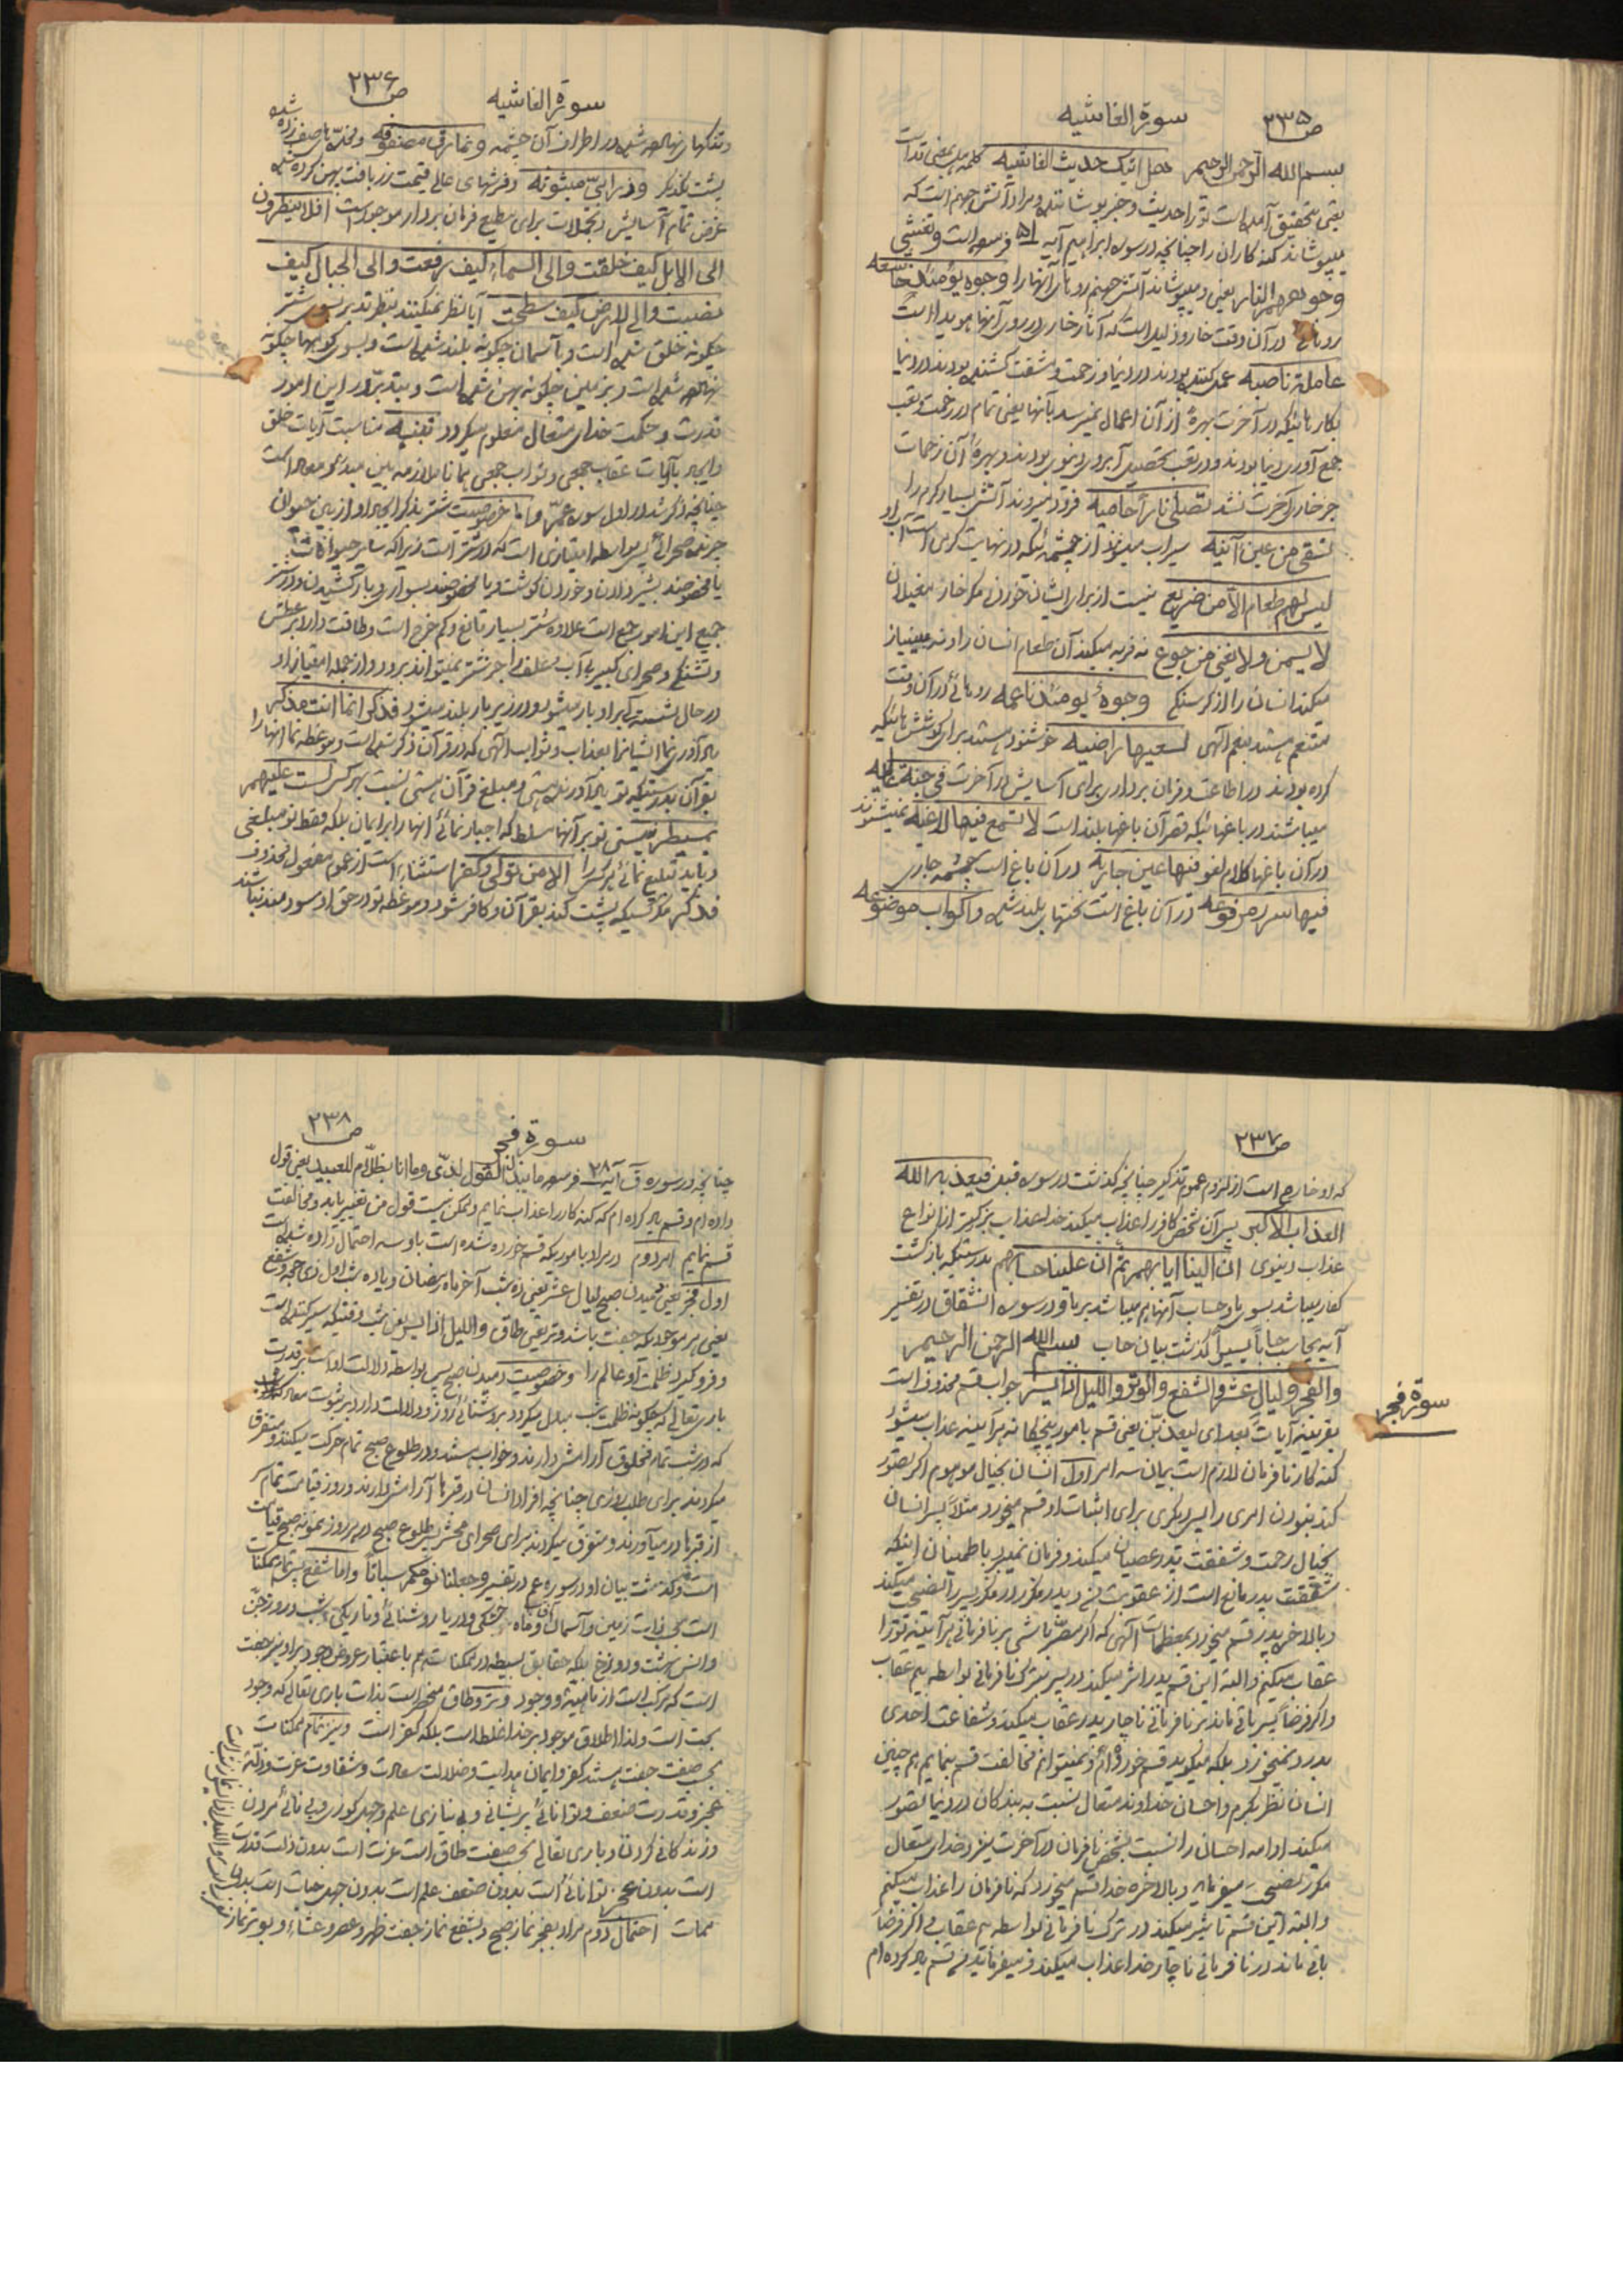 ص ۲۳۵
سورة الغاشیه
بسم الله الرحمن الرحیم هل اتیک حدیث الغاشیه کلمه هل بمعنی قد است
یعنی بتحقیق آمده است تو را حدیث و خبر پوشاننده و مراد آتش جهنم است که
میپوشاند گنه کاران را چنانچه در سوره ابراهیم آیه ۵۱ فرموده است و تغشی
وجوههم النار یعنی و میپوشاند آتش جهنم روهای آنها را وجوه یومئذ خاشعه
روهائی در آن وقت خار و ذلیل است که آثار خاری در روی آنها هویدا است
عاملة ناصبه عمل کننده بودند در دنیا و زحمت و مشقت کشنده بودند در دنیا
بکارهائیکه در آخرت بهرهٔ از آن اعمال نمیرسد بآنها یعنی تمام در زحمت و تعب
جمع آوری دنیا بودند و در تعب تحصیل آبروی دنیوی بودند و بهرهٔ آن زحمات
جز خاری آخرت نشد تصلی ناراً حامیه فرود میروند آتش بسیار گرم را
تسقی من عین آنیه سیراب میشوند از چشمهٔ که در نهایت گرمی است آب او
لیس لهم طعام الا من ضریع نیست از برای ایشان خوردنی مگر خار مغیلان
لا یسمن ولا یغنی من جوع نه فربه میکند آن طعام انسان را و نه بینیاز
میکند انسان را از گرسنگی وجوهٌ یومئذ ناعمه روهائی در آن وقت
متنعم هستند بنعم الهی لسعیها راضیه خوشنود هستند برای کوششهائیکه
کرده بودند در اطاعت و فرمان برداری برای آسایش در آخرت فی جنة عالیه
میباشند در باغهائیکه قصر آن باغها بلند است لا تسمع فیها لاغیه نمیشنوند
در آن باغها کلام لغو فیها عین جاریه در آن باغ است چشمه جاری
فیها سرر مرفوعه در آن باغ است تختهای بلند شده و اکواب موضوعه
ص ۲۳۶
سورة الغاشیه
و تنگهای نهاده شده در اطراف آن چشمه و نمارق مصفوفه و مخدّه های صف زده شده
پشت یکدیگر و زرابیّ مبثوثه و فرشهای عالی قیمت زربافت پهن کرده شده
غرض تمام آسایش و تجملات برای مطیع فرمان بردار موجود است افلا ینظرون
الی الابل کیف خلقت والی السماء کیف رفعت والی الجبال کیف
نصبت والی الارض کیف سطحت آیا نظر نمیکنند بنظر تدبر بسوی شتر
چگونه خلق شده است و بآسمان چگونه بلند شده است و بسوی کوهها چگونه
نهاده شده است و بزمین چگونه پهن شده است و بتدبّر در این امور
قدرت و حکمت خدای متعال معلوم میگردد تنبیه مناسبت آیات خلق
و ایجاد بآیات عقاب جمعی و ثواب جمعی همانا ملازمه بین مبدء و معاد است
چنانچه ذکر شد در اول سوره عمّ و اما خصوصیت شتر بذکر ایجاد او از بین حیوان
چرنده صحرائی پس بواسطه امتیازی است که در شتر است زیرا که سایر حیوانات
یا مخصوصند بشیر دادن و خوردن گوشت و یا مخصوصند بسواری و بار کشیدن و در شتر
جمیع این امور جمع است علاوه شتر بسیار قانع و کم خرج است و طاقت دارد بر عطش
و تشنگی و صحرای کبیر بی آب و علف را جز شتر نمیتواند برود و از جمله امتیاز او
در حال نشسته گی او بار میشود و در زیر بار بلند میشود فذکر انما انت مذکر
یاد آوری نما ایشانرا بعذاب و ثواب الهی که در قرآن ذکر شده است و موعظه نما آنها را
بقرآن بدرستیکه تو یاد آورنده هستی و مبلغ قرآن هستی نسبت بهر کس لست علیهم
بمسیطر نیستی تو بر آنها مسلط که اجبار نمائی آنها را بر ایمان بلکه فقط تو مبلغی
و باید تبلیغ نمائی هر کس را الا من تولی و کفر استثناء است از عموم مفعول محذوف
فذکر مگر کسیکه پشت کند بقرآن و کافر شود و موعظه تو در حق او سودمند نباشد
ص ۲۳۷
که او خارج است از لزوم عموم تذکیر چنانچه گذشت در سوره قبل فیعذبه الله
العذاب الاکبر پس آن شخص کافر را عذاب میکند خدا عذاب بزرگتر از انواع
عذاب دنیوی ان الینا ایابهم ثم ان علینا حسابهم بدرستیکه بازگشت
کفار میباشد بسوی ما و حساب آنها هم میباشد بر ما و در سوره انشقاق در تفسیر
آیه یحاسب حساباً یسیراً گذشت بیان حساب بسم الله الرحمن الرحیم
سورة فجر
والفجر ولیال عشر والشفع والوتر واللیل اذا یسر جواب قسم محذوف است
بقرینه آیات بعد ای لیعذبنّ یعنی قسم بامور پنجگانه هرآینه عذاب میشود
گنه کار نافرمان لازم است بیان سه امر اول انسان بخیال موهوم اگر تصور
کند نبودن امری را پس دیگری برای اثبات او قسم میخورد مثلاً پسر انسان
بخیال رحمت و شفقت پدر عصیان میکند و فرمان نمیبرد باطمینان اینکه
شفقت پدر مانع است از عقوبت و پدر مکرر در مکرر پسر را نصیحت میکند
و بالاخره پدر قسم میخورد بمعظمات الهی که اگر مصرّ باشی بر نافرمانی هرآینه تو را
عقاب میکنم و البته این قسم پدر اثر میکند در پسر بترک نافرمانی بواسطه بیم عقاب
و اگر فرضاً پسر باقی ماند بر نافرمانی ناچار پدر عقاب میکند و شفاعت احدی
بدرد نمیخورد بلکه میگوید قسم خورده ام و نمیتوانم مخالفت قسم بنمایم همچنین
انسان نظر بکرم و احسان خداوند متعال نسبت به بندگان در دنیا تصور
میکند ادامه احسان را نسبت بشخص نافرمان در آخرت نیز و خدای متعال
مکرر نصیحت میفرماید و بالاخره خدا قسم میخورد که نافرمان را عذاب میکنم
و البته این قسم تاثیر میکند در ترک نافرمانی بواسطه بیم عقاب و اگر فرضاً
باقی ماند در نافرمانی ناچار خدا عذاب میکند و میفرماید قسم یاد کرده ام
ص ۲۳۸
سورة فجر
چنانچه در سوره ق آیه ۲۸ فرموده ما یبدل القول لدیّ وما انا بظلّام للعبید یعنی قول
داده ام و قسم یاد کرده ام که گنه کار را عذاب نمایم و ممکن نیست قول من تغییر یابد و مخالفت
قسم نمایم امر دوم در مراد باموریکه قسم خورده شده است باو سه احتمال داده شده است
اول فجر یعنی دمیدن صبح لیال عشر یعنی ده شب آخر ماه رمضان و یا ده شب اول ذی حجه و شفع
یعنی هر موجودیکه جفت باشد و وتر یعنی طاق واللیل اذا یسر یعنی شب وقتیکه سیر کننده است
و فرو گیرد ظلمت او عالم را و خصوصیت دمیدن صبح پس بواسطه دلالت او است بر قدرت
باری تعالی که چگونه ظلمت شب مبدل میگردد بروشنائی روز و دلالت دارد بر ثبوت معاد
که در شب تمام مخلوق آرامش دارند و خواب هستند و در طلوع صبح تمام حرکت میکنند و متفرق
میگردند برای طلب روزی چنانچه افراد انسان در قبرها آرامش دارند و روز قیامت تمام سر
از قبر بدر میآورند و متفرق میگردند برای صحرای محشر پس طلوع صبح در هر روز نمونه صبح قیامت
است و گذشت بیان او در سوره عم در تفسیر وجعلنا نومکم سباتاً واما شفع پس تمام ممکنات
است زمین و آسمان آفتاب و ماه خشکی و دریا روشنائی و تاریکی و شب و روز و جنّ
و انس بهشت و دوزخ بلکه حقایق بسیطه در ممکنات هم باعتبار عروض وجود بر او نیز جفت
است که مرکب است از ماهیة و وجود و وتر و طاق منحصر است بذات باری تعالی که وجود
بحت است و لذا اطلاق موجود بر خدا غلط است بلکه کفر است و نیز تمام ممکنات
بحسب صفت جفت هستند کفر و ایمان هدایت و ضلالت سعادت و شقاوت عزت و ذلت
عجز و قدرت ضعف و توانائی پریشانی و بی نیازی علم و جهل کوری و بینائی مردن
و زندگانی کردن و باری تعالی بحسب صفت طاق است عزت است بدون ذلت قدرت
است بدون عجز توانائی است بدون ضعف علم است بدون جهل حیات است بدون
ممات احتمال دوم مراد بفجر نماز صبح و بشفع نماز جفت ظهر و عصر و عشاء و بوتر نماز